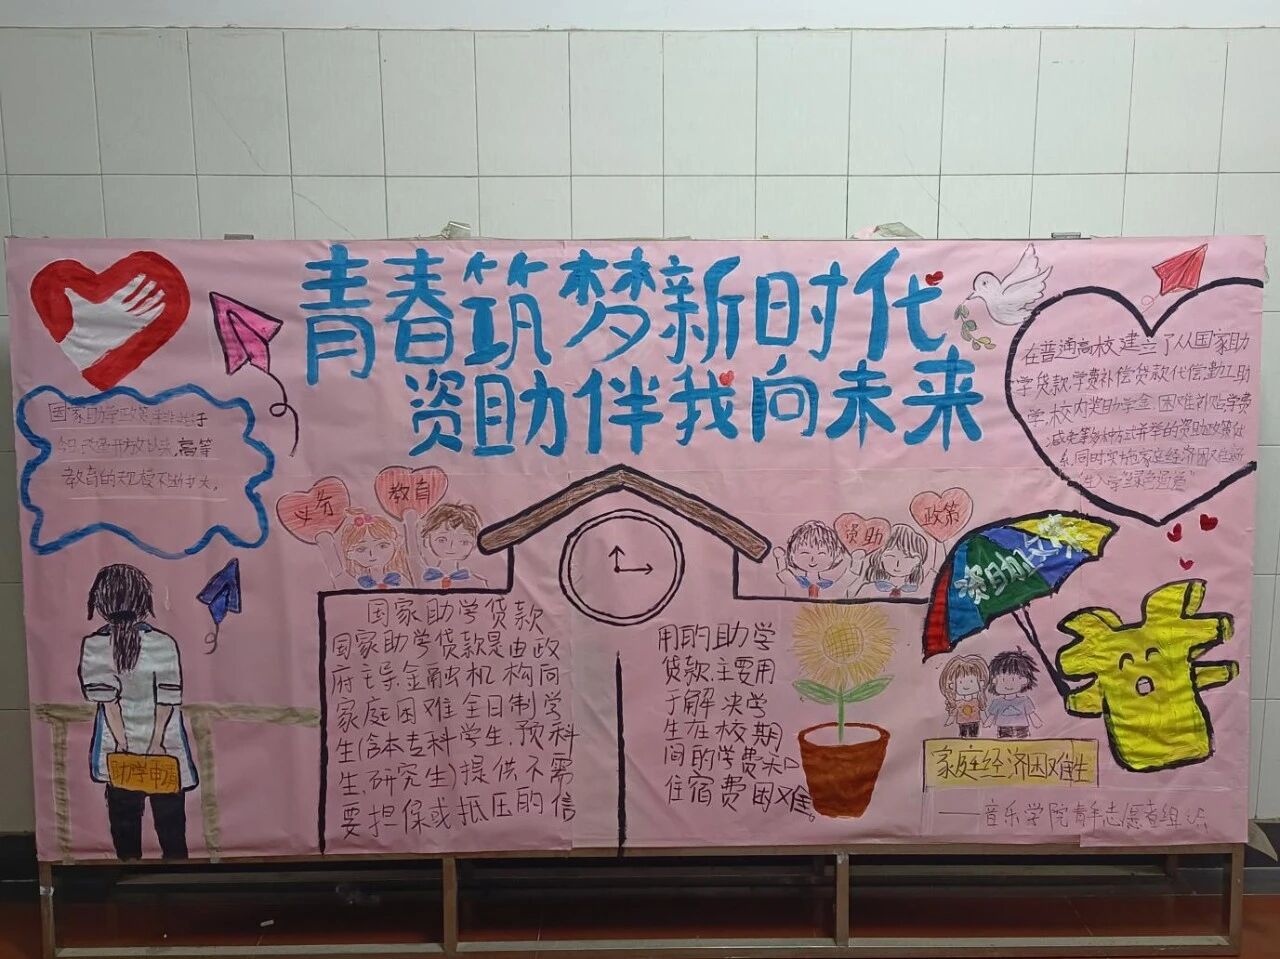 青春筑梦新时代
资助伴我向未来
高等
教育的规模不断扩大。
在普通高校建立了从国家助
学贷款,学费补偿贷款代偿,勤工助
学,校内奖助学金,困难补贴,学费
减免等多种方式并举的资助政策体
系,同时实施家庭经济困难新
生入学"绿色通道"
教育
资助
政策
国家助学贷款
国家助学贷款是由政
府主导,金融机构向
家庭困难全日制学
生(含本专科学生,预科
生,研究生)提供不需
要担保或抵压的信
用的助学
贷款,主要用
于解决学
生在校期
间的学费和
住宿费困难。
资助
助学申请
家庭经济困难生
——音乐学院青年志愿者组织